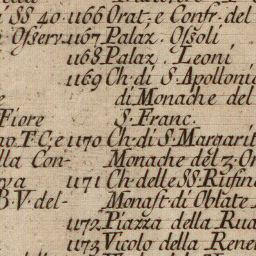 SS 40. 1166 Orat. e Confr. del
Osserv. 1167 Palaz. Ossoli
1168 Palaz. Leoni
1169 Ch. di S. Apollonia
di Monache del
Fiore S. Franc.
no. F. C. e 1170 Ch. di S. Margarit
lla Con- Monache del 3. Or
va 1171 Ch. delle SS. Rufin
B. V. del- Monast. di Oblate
1172 Piazza della Rua
1173 Vicolo della Rene